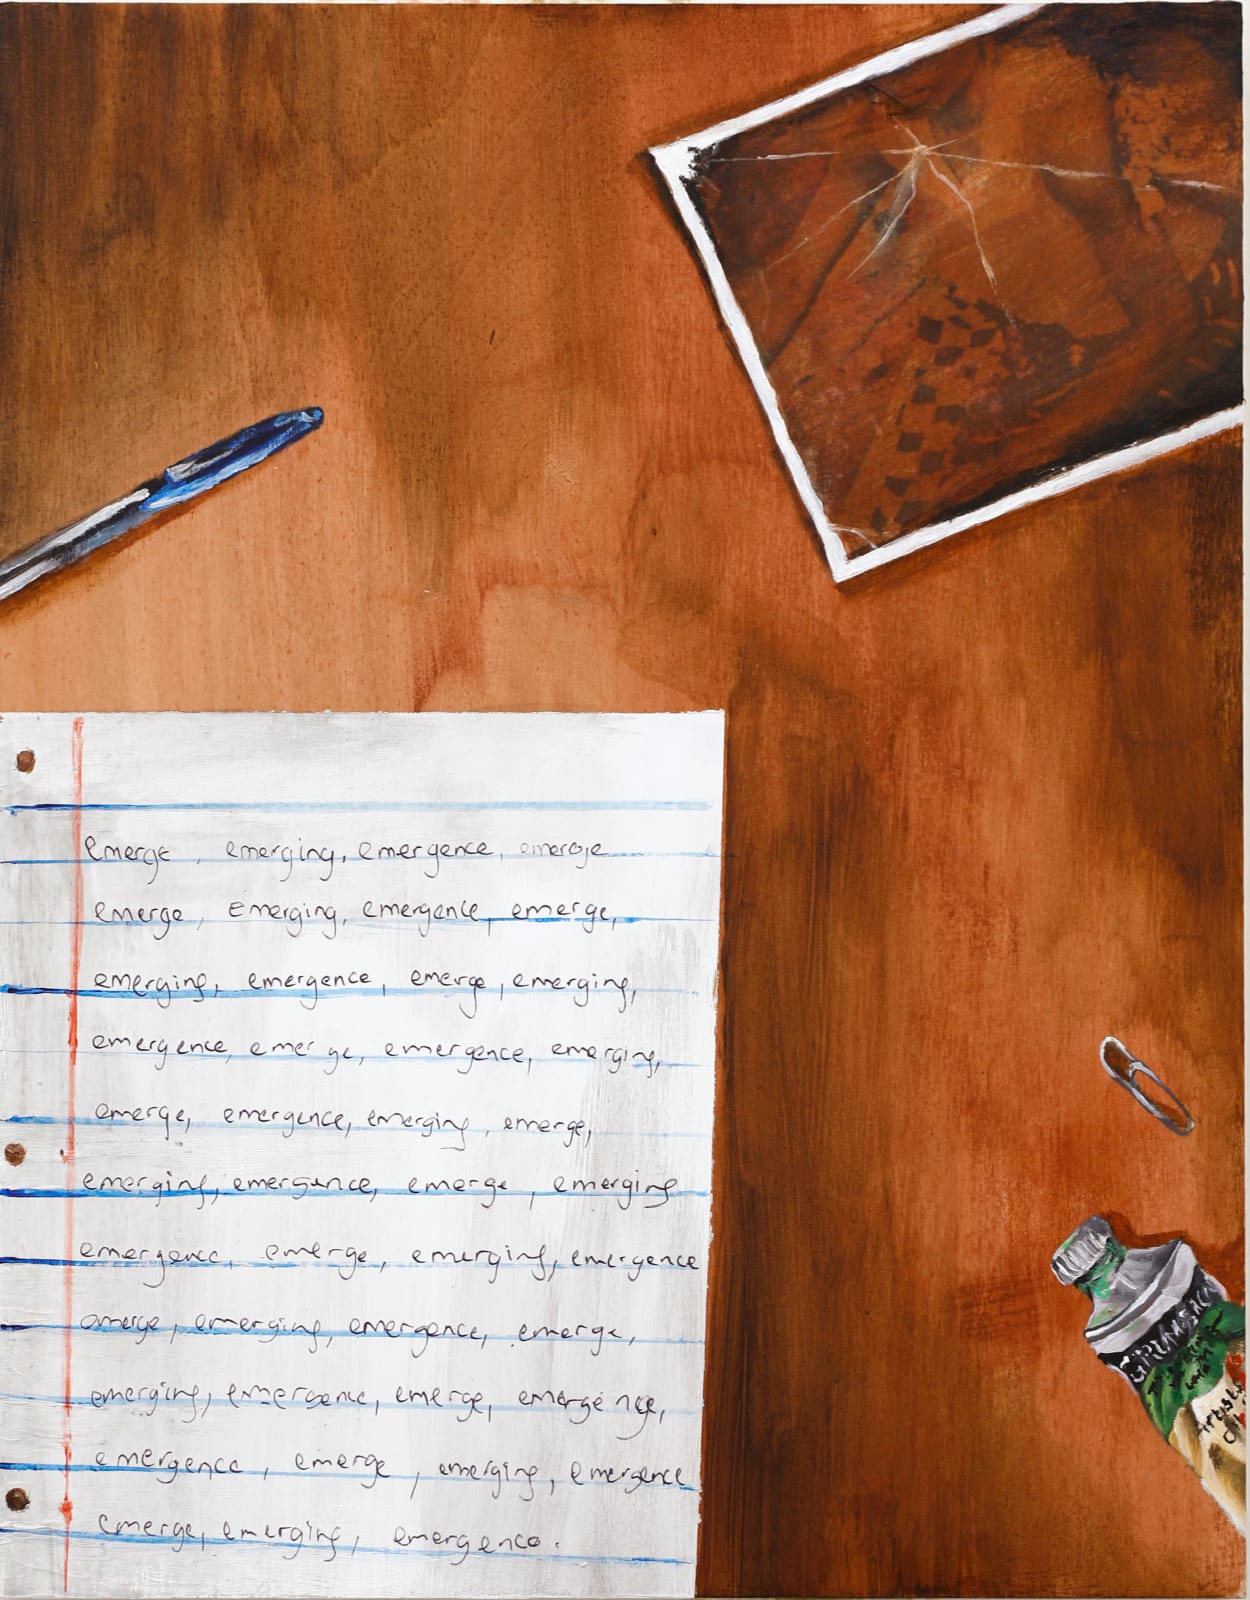 emerge, emerging, emergence, emerge
emerge, emerging, emergence, emerge,
emerging, emergence, emerge, emerging,
emergence, emerge, emergence, emerging,
emerge, emergence, emerging, emerge,
emerging, emergence, emerge, emerging
emergence, emerge, emerging, emergence
emerge, emerging, emergence, emerge,
emerging, emergence, emerge,
emergence, emerge, emerging, emergence
emerge, emerging, emergence.